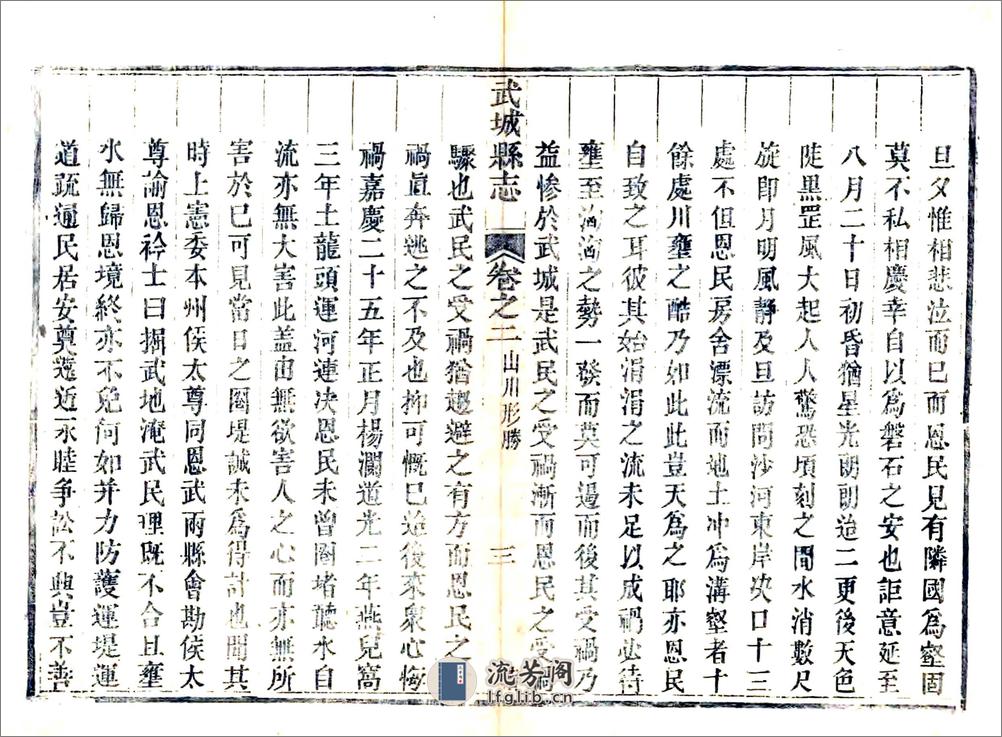 旦夕惟相悲泣而已而恩民見有隣國爲壑固
莫不私相慶幸自以爲磐石之安也詎意延至
八月二十日初昏猶星光朗朗迨二更後天色
陡黑罡風大起人人驚恐頃刻之間水消數尺
旋卽月明風靜及旦訪問沙河東岸决口十三
處不但恩民房舍漂流而地土冲爲溝壑者十
餘處川壅之酷乃如此此豈天爲之耶亦恩民
自致之耳彼其始涓涓之流未足以成禍必待
壅至洶洶之勢一發而莫可遏而後其受禍乃
益惨於武城是武民之受禍漸而恩民之受禍
武城縣志
卷之二
山川形勝
三
驟也武民之受禍猶遷避之有方而恩民之
禍眞奔逃之不及也抑可慨已迨後來衆心悔
禍嘉慶二十五年正月楊瀾道光二年燕兒窩
三年土龍頭運河連决恩民未曾圈堵聽水自
流亦無大害此盖由無欲害人之心而亦無所
害於已可見當日之圈堤誠未爲得計也聞其
時上憲委本州侯太尊同恩武兩縣會勘侯太
尊諭恩衿士曰掘武地淹武民理既不合且壅
水無歸恩境終亦不免何如并力防護運堤運
道疏通民居安奠遐近永睦争訟不興豈不善
流芳阁
lfglib.cn